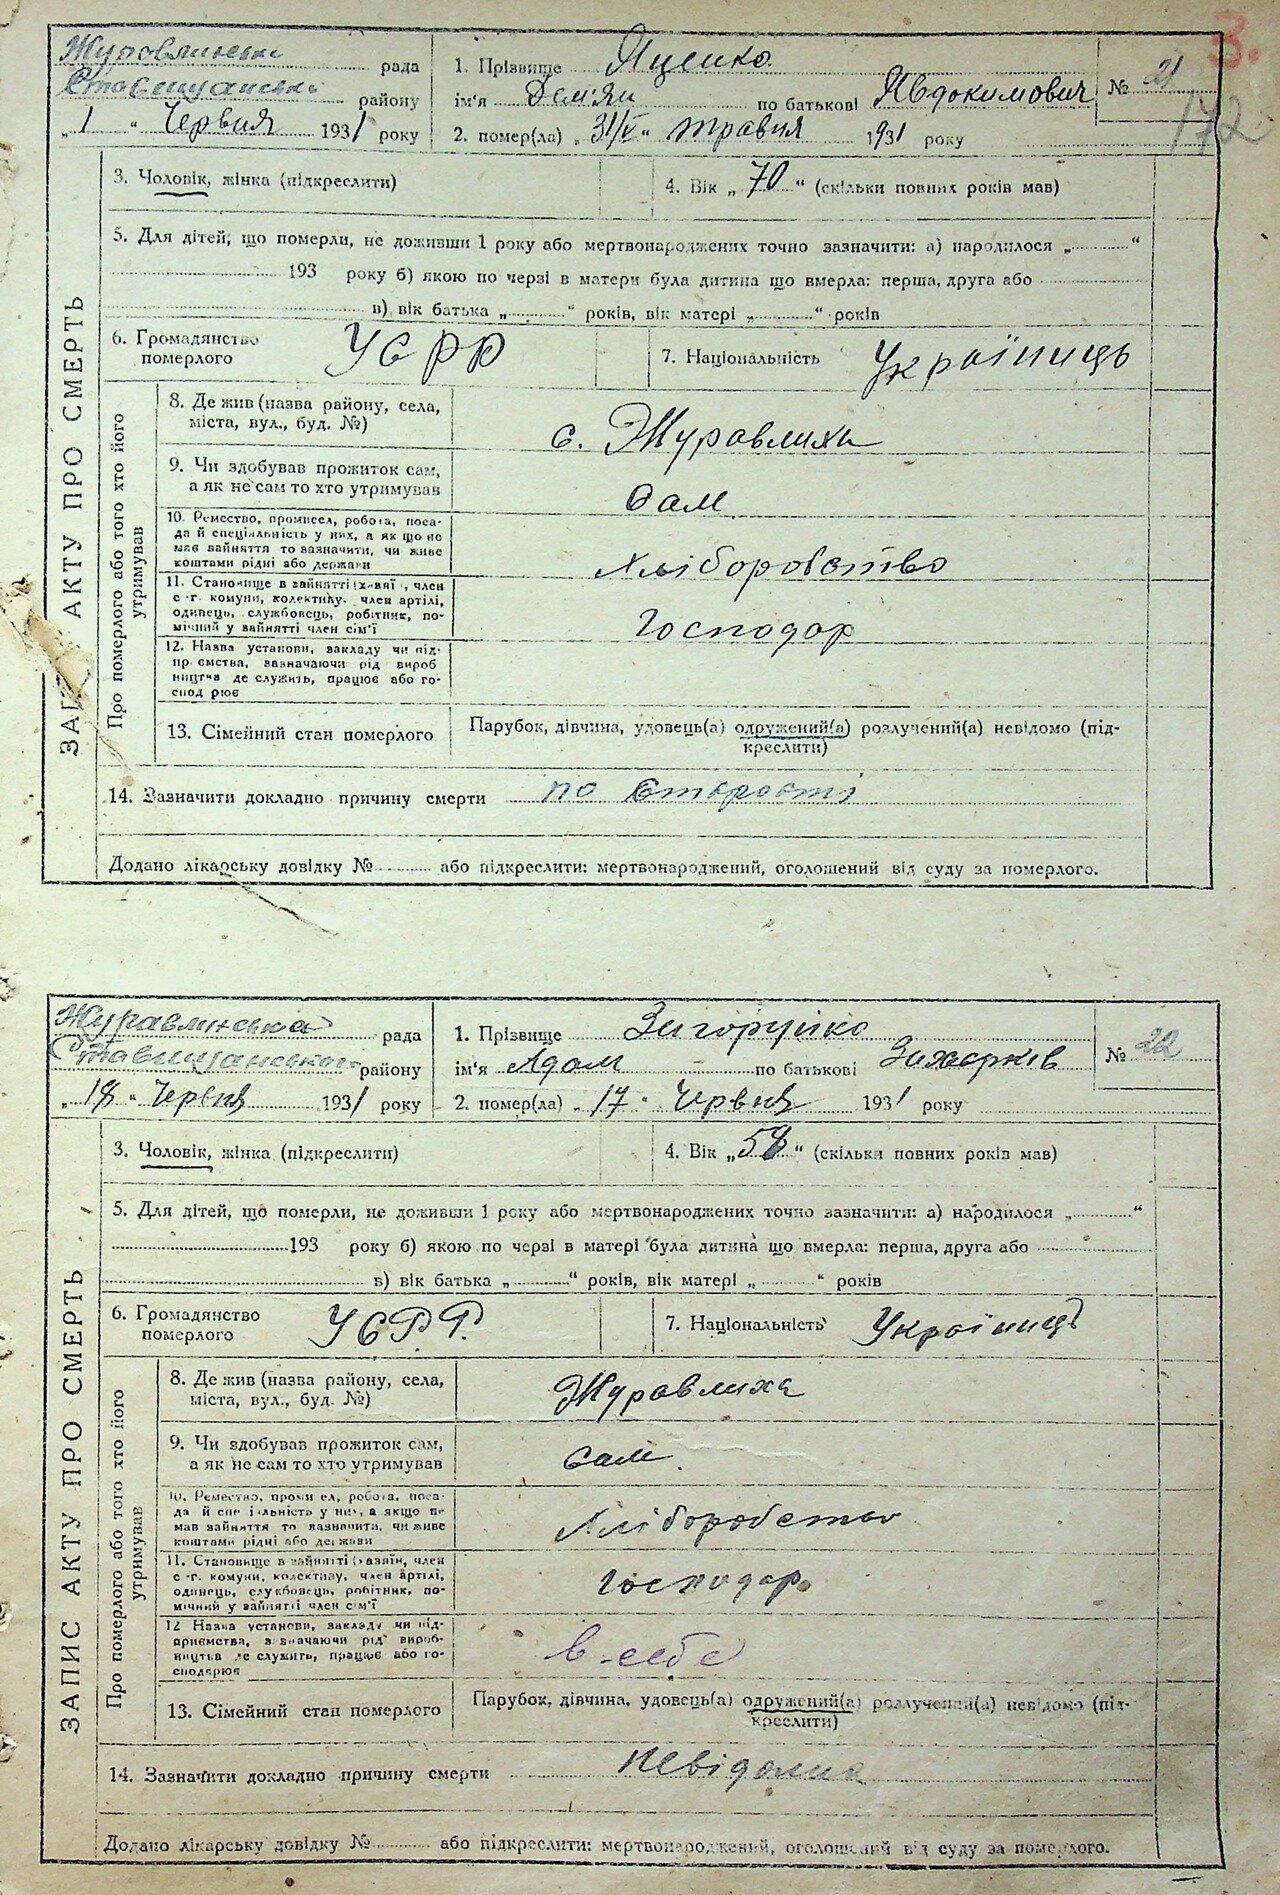 3.
172
Журовлинська рада
Ставищанський району
„1“ Червня 1931 року
1. Прізвище Яценко
ім'я Дем'ян по батькові Явдокимович
2. помер(ла) „31/V“ травня 1931 року
№ 21
3. Чоловік, жінка (підкреслити)
4. Вік „70“ (скільки повних років мав)
5. Для дітей, що померли, не доживши 1 року або мертвонароджених точно зазначити: а) народилося „ “
193 року б) якою по черзі в матери була дитина що вмерла: перша, друга або
в) вік батька „ “ років, вік матері „ “ років
6. Громадянство померлого УСРР
7. Національність Українець
ЗАПИС АКТУ ПРО СМЕРТЬ
Про померлого або того хто його утримував
8. Де жив (назва району, села,
міста, вул., буд. №)
с. Журавлиха
9. Чи здобував прожиток сам,
а як не сам то хто утримував
Сам
10. Ремество, промисел, робота, поса-
да й спеціальність у них, а як що не
має зайняття то зазначити, чи живе
коштами рідні або держави
хліборобство
11. Становище в зайнятті (хазяї, член
с.-г. комуни, колективу, член артілі,
одинець, службовець, робітник, по-
мічний у зайнятті член сім'ї
Господар
12. Назва установи, закладу чи під-
приємства, зазначаючи рід вироб
ництва де служить, працює або го-
сподарює
13. Сімейний стан померлого
Парубок, дівчина, удовець(а) одружений(а) розлучений(а) невідомо (під-
креслити)
14. Зазначити докладно причину смерти по старості
Додано лікарську довідку № або підкреслити: мертвонароджений, оголошений від суду за померлого.
Журавлинська рада
Ставищанського району
„18“ Червня 1931 року
1. Прізвище Загоруйко
ім'я Адам по батькові Захарків
2. помер(ла) „17“ Червня 1931 року
№ 22
3. Чоловік, жінка (підкреслити)
4. Вік „58“ (скільки повних років мав)
5. Для дітей, що померли, не доживши 1 року або мертвонароджених точно зазначити: а) народилося „ “
193 року б) якою по черзі в матері була дитина що вмерла: перша, друга або
в) вік батька „ “ років, вік матері „ “ років
6. Громадянство померлого УСРР.
7. Національність Українець
ЗАПИС АКТУ ПРО СМЕРТЬ
Про померлого або того хто його утримував
8. Де жив (назва району, села,
міста, вул., буд. №)
Журавлиха
9. Чи здобував прожиток сам,
а як не сам то хто утримував
сам.
10. Ремество, промисел, робота, поса-
да й спеціальність у них, а якщо не
мав зайняття то зазначити, чи живе
коштами рідні або держави
Хліборобство
11. Становище в зайнятті (хазяїн, член
с.-г. комуни, колективу, член артілі,
одинець, службовець, робітник, по-
мічний у зайнятті член сім'ї
господар
12 Назва установи, закладу чи під-
приємства, зазначаючи рід вироб-
ництва де служить, працює або го-
сподарює
в себе
13. Сімейний стан померлого
Парубок, дівчина, удовець(а) одружений(а) розлучений(а) невідомо (під-
креслити)
14. Зазначити докладно причину смерти невідома
Додано лікарську довідку № або підкреслити: мертвонароджений, оголошений від суду за померлого.